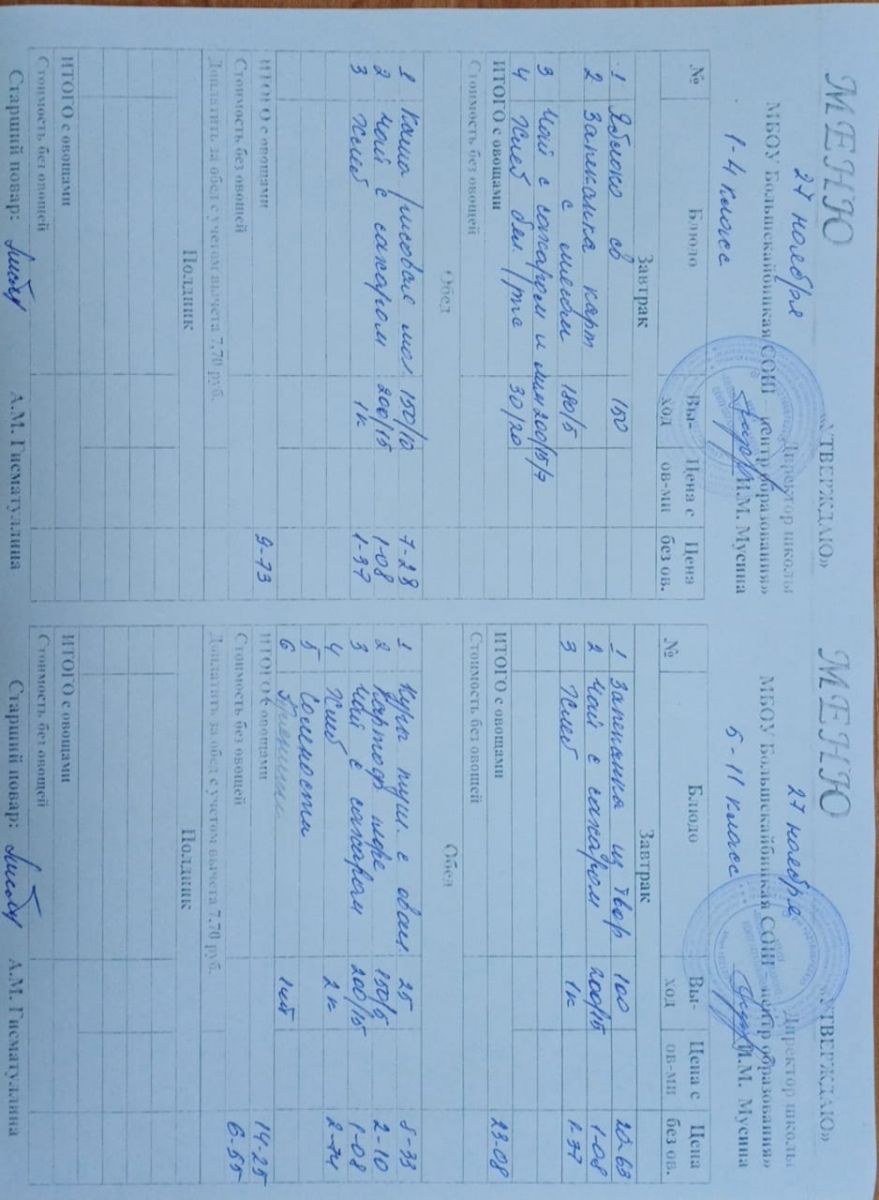 МЕНЮ
«УТВЕРЖДАЮ»
27 ноября
Директор школы
МБОУ Большекайбицкая СОШ – центр образования»
1-4 класс
И.М. Мусина
№ Блюдо Вы-ход Цена с ов-ми Цена без ов.
Завтрак
1 Яблоко св 150
2 Запеканка карт
с мясом 180/5
3 Чай с сахаром и лим 200/15/7
4 Хлеб бел. /рж 30/20
ИТОГО с овощами
Стоимость без овощей
Обед
1 Каша рисовая мол. 150/10 7-28
2 Чай с сахаром 200/15 1-08
3 Хлеб 1к 1-37
ИТОГО с овощами 9-73
Стоимость без овощей
Доплатить за обед с учетом вычета 7,70 руб.
Полдник
ИТОГО с овощами
Стоимость без овощей
Старший повар: А.М. Гисматуллина
МЕНЮ
«УТВЕРЖДАЮ»
27 ноября
Директор школы
МБОУ Большекайбицкая СОШ – центр образования»
5-11 класс
И.М. Мусина
№ Блюдо Вы-ход Цена с ов-ми Цена без ов.
Завтрак
1 Запеканка из твор 100 20-63
2 Чай с сахаром 200/15 1-08
3 Хлеб 1к 1-37
ИТОГО с овощами 23-08
Стоимость без овощей
Обед
1 Куры туш. с овощ. 25 8-33
2 Картоф пюре 150/5 2-10
3 Чай с сахаром 200/15 1-08
4 Хлеб 2к 2-74
5 Сладости
6 1шт
ИТОГО с овощами 14-25
Стоимость без овощей 6-55
Доплатить за обед с учетом вычета 7,70 руб.
Полдник
ИТОГО с овощами
Стоимость без овощей
Старший повар: А.М. Гисматуллина